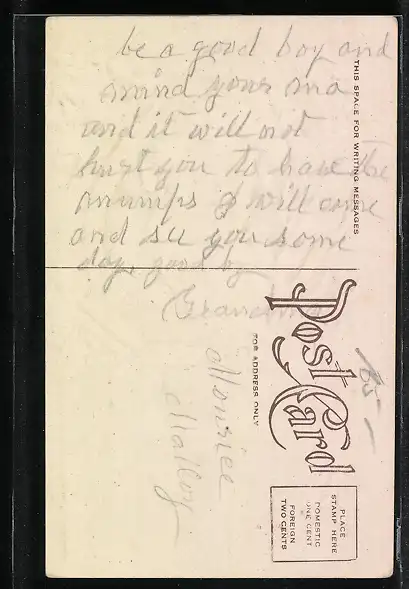 be a good boy and
mind your ma
and it will not
hurt you to have the
mumps I will come
and see you some
day good by
Grandma
Malloy
THIS SPACE FOR WRITING MESSAGES
Post Card
FOR ADDRESS ONLY
PLACE
STAMP HERE
DOMESTIC
ONE CENT
FOREIGN
TWO CENTS